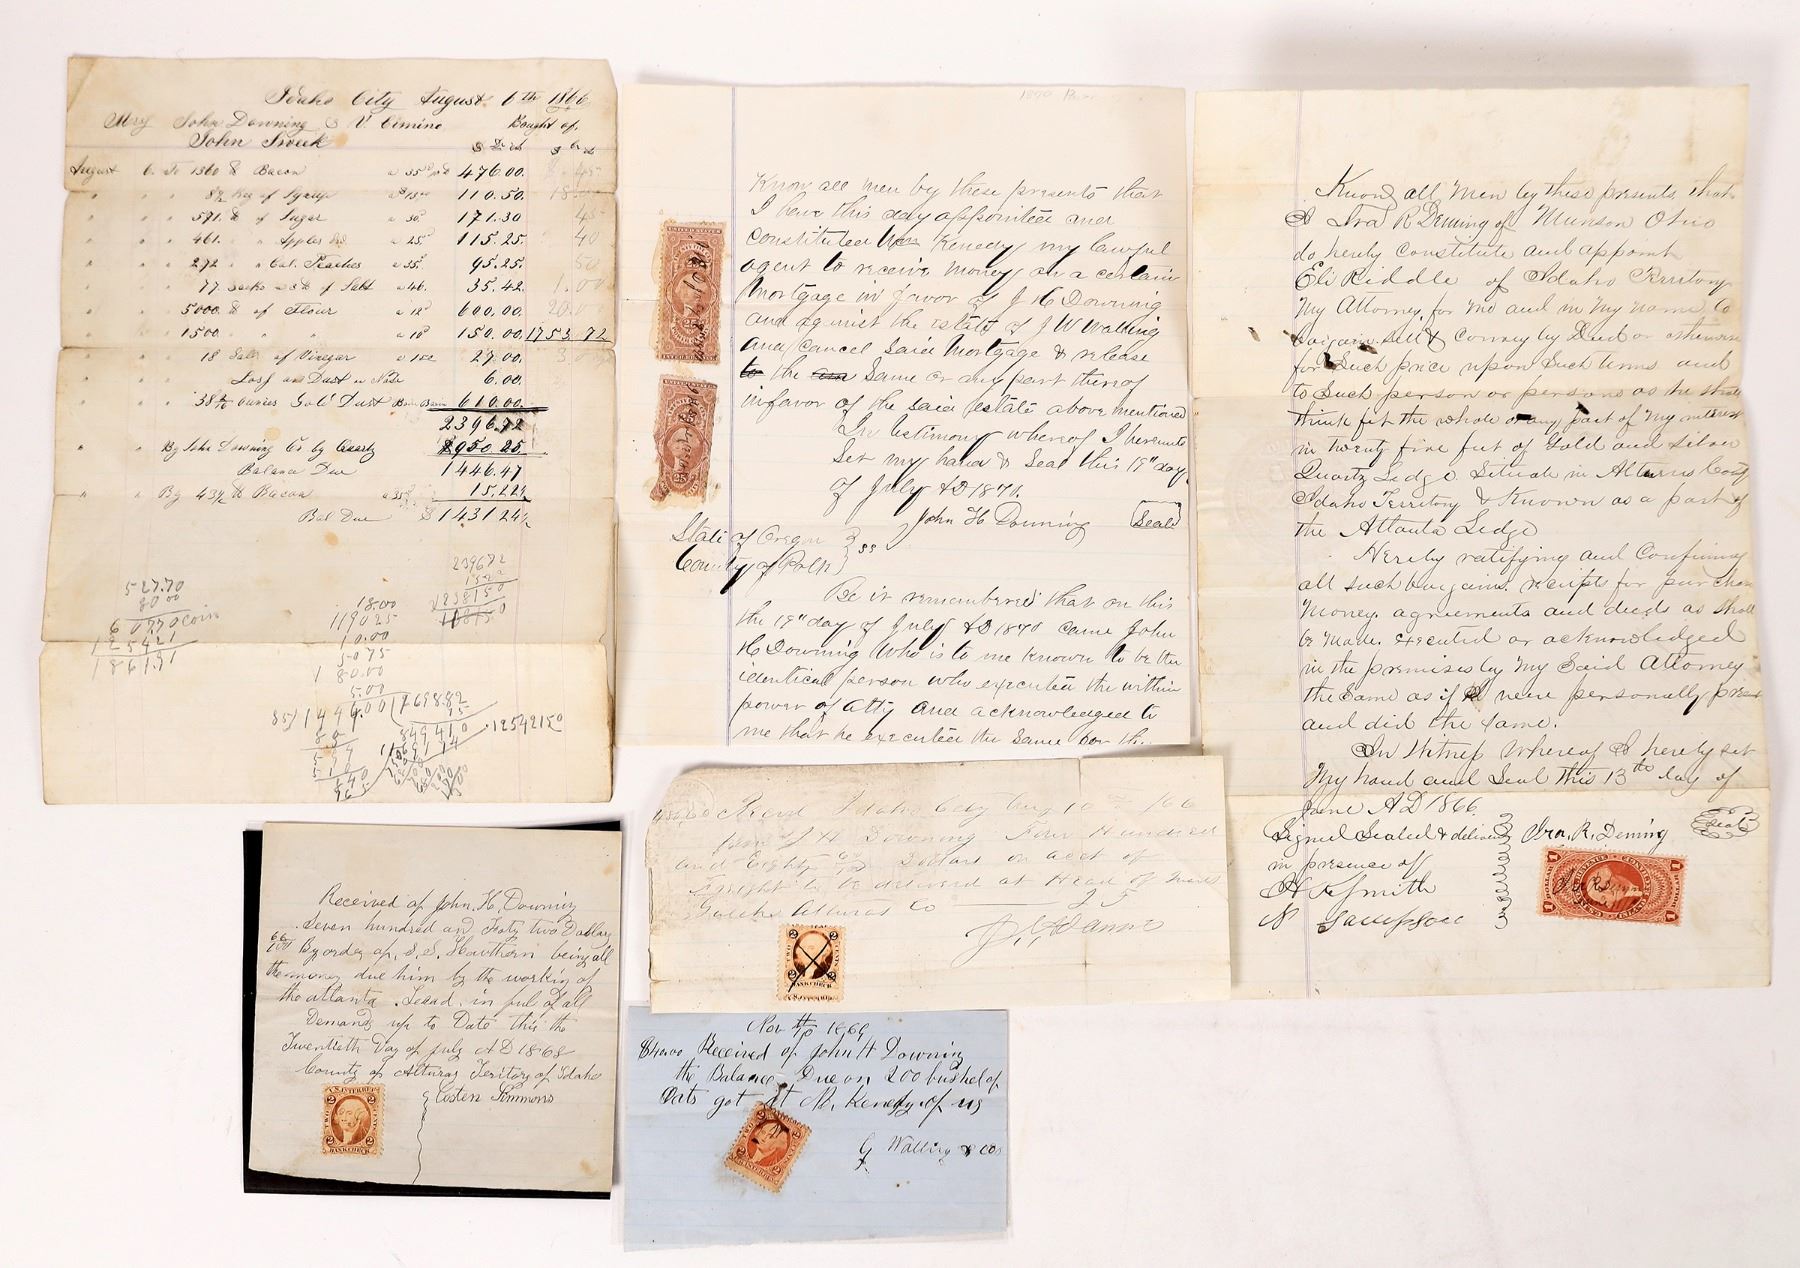 Idaho City August 6th 1866
John Downing & V. Cimino Bought of
John
August 6. To 1360 lb Bacon 476.00.
" " " 8 1/2 Keg of Syrup 110.50.
" " " 591. lb of Sugar " 30c 171.30
" " " 461. " " Apples " 25c 115.25.
" " " 272 " " Cal. Peaches " 35c 95.25.
" " " 77 " 46. 35.42.
" " " 5000 lb of Flour " 12c 600.00.
" " " 1500 " " " 10c 150.00. 1753.72
" " " 18 Gals of Vinegar " 150 27.00.
" " " Loss on Dust 6.00.
" " " ounces Gold Dust 610.00.
2396.72
" " By John Downing Co by Quartz $950.25.
Balance Due 1446.47
" " By 43 1/2 lb Bacon " 35c 15.22 1/2
Bal Due $1431.24 1/2
527.70
80 00
607.70 coin
1254 21
1861.91
18.00
119025
10.00
5075
1 80.00
5.00
239672
12542150
Know all men by these presents that
I have this day appointed and
constituted Kenedy my lawful
agent to receive money on a certain
Mortgage in favor of J H Downing
and against the estate of J W Walling
and cancel said Mortgage & release
to the same or any part thereof
in favor of the said estate above mentioned
In testimony whereof I hereunto
Set my hand & Seal this 19" day
of July AD 1870.
John H Downing (Seal)
State of Oregon } ss
County of Polk }
Be it remembered that on this
the 19" day of July AD 1870 came John
H Downing Who is to me known to be the
identical person who executed the within
power of atty and acknowledged to
me that he executed the same for the
Know all Men by these presents that
I Ira R Deming of Munson Ohio
do hereby constitute and appoint
Eli Riddle of Idaho Territory
My Attorney, for me and in my name to
bargain sell & convey by Deed or otherwise
for such price upon such terms and
to such person or persons as he shall
think fit the whole or any part of my interest
in twenty five feet of Gold and Silver
Quartz Ledge Situate in Alturas County
Idaho Territory & Known as a part of
the Atlanta Ledge
Hereby ratifying and Confirming
all such bargains. receipts for purchase
Money. agreements and deeds as shall
be made. executed or acknowledged
in the premises by my said Attorney
the same as if I were personally present
and did the same.
In Witness Whereof I hereby set
My hand and Seal this 13th day of
June AD 1866.
Signed Sealed & delivered Ira. R. Deming (Seal)
in presence of
Smith
N
480.00 Recvd Idaho City Aug 10th /66
from J H Downing Four Hundred
and Eighty Dollars on acct of
Freight to be delivered at Head of
Alturas Co
J. C. Damm
2 2
BANK CHECK
Received of John. H. Downing
Seven hundred and Forty two Dollars
66/100 By order of, S. S. Hawthern being all
the money due him by the working of
the atlanta. Lead. in full of all
Demands up to Date this the
Twentieth Day of July AD 1868
County of Alturas Teritory of Idaho
Costen Simmons
U.S. INTER. REV.
2 2
BANK CHECK
Nov 1869
$40.00 Received of John H Downing
the Balance Due on 200 bushel of
Oats got at Kenedy of us
G Walling & Co